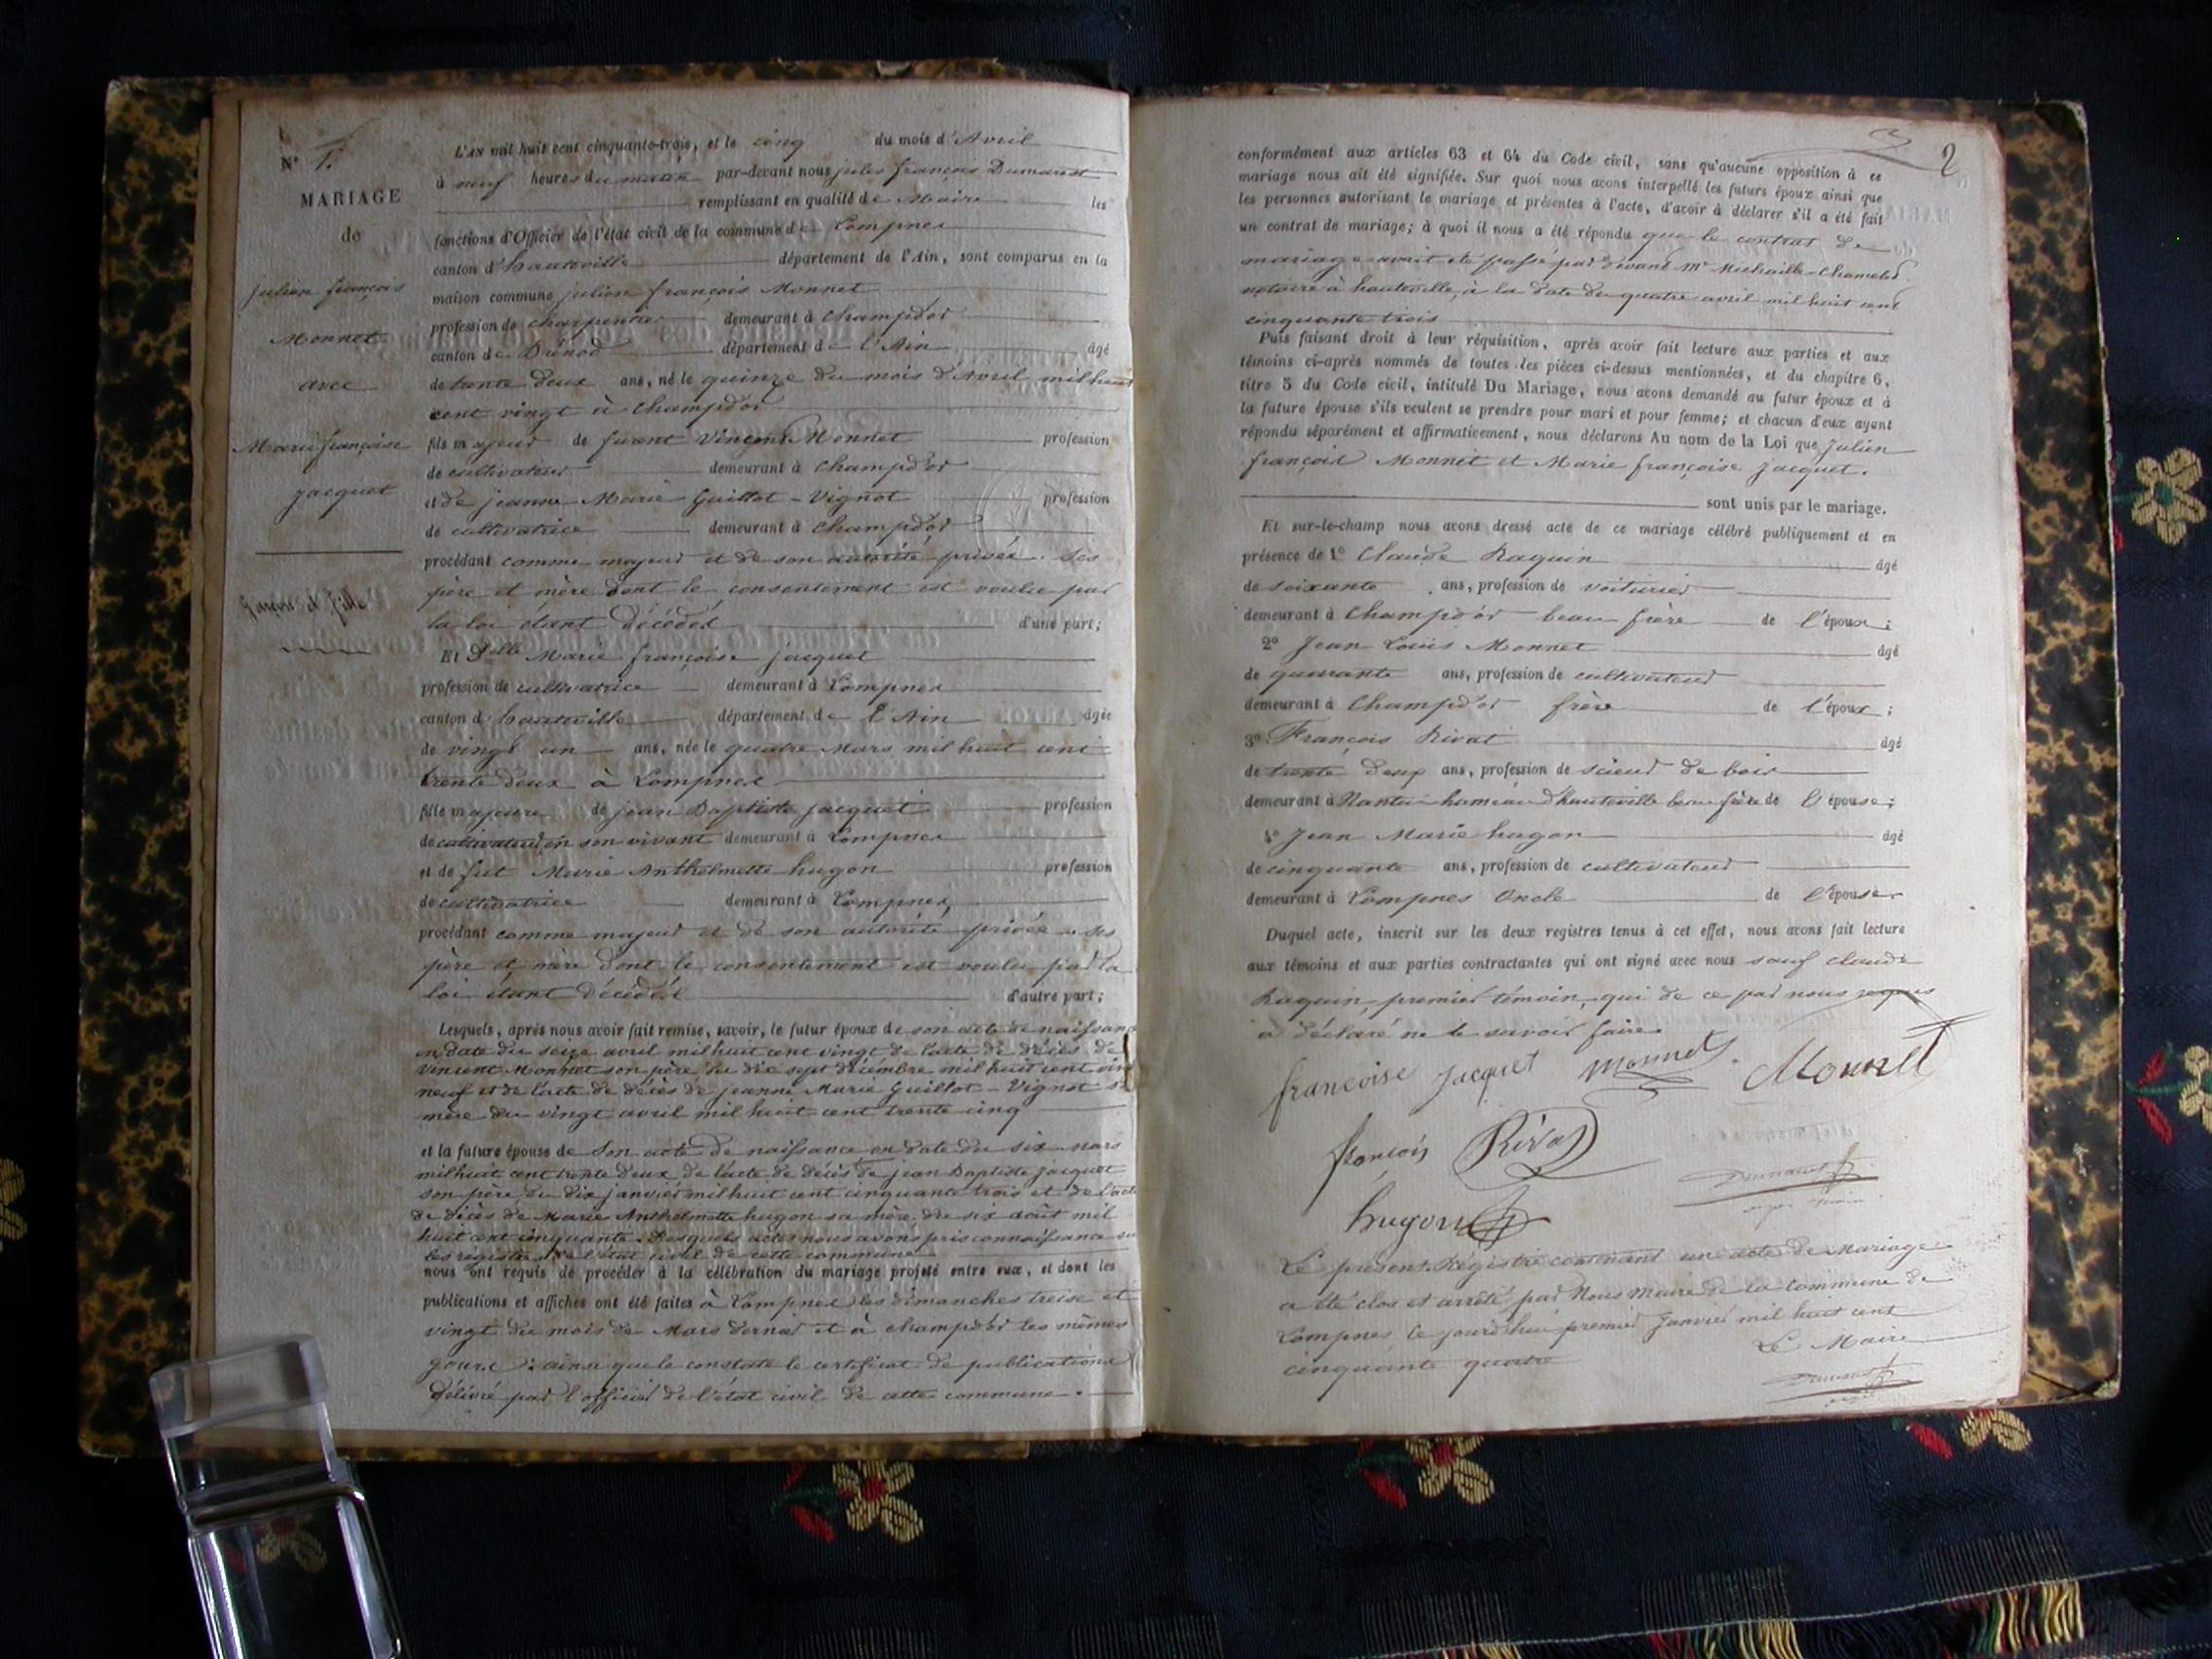 N° 1.
MARIAGE
de
julien françois
Monnet
avec
Marie françoise
jacquet
garçon et fille
L'AN mil huit cent cinquante-trois, et le cinq du mois d'Avril
à neuf heures du matin par-devant nous jules françois Dumarest
remplissant en qualité de Maire les
fonctions d'Officier de l'état civil de la commune de Lompnes
canton d'hauteville département de l'Ain, sont comparus en la
maison commune julien françois Monnet
profession de charpentier demeurant à Champdor
canton de Brénod département de l'Ain âgé
de trente deux ans, né le quinze du mois d'Avril mil huit
cent vingt à Champdor
fils majeur de furent Vincent Monnet profession
de cultivateur demeurant à Champdor
et de jeanne Marie Guillot-Vignot profession
de cultivatrice demeurant à Champdor
procédant comme majeur et de son autorité privée. Ses
père et mère dont le consentement est voulu par
la loi étant décédés d'une part;
Et Delle Marie françoise jacquet
profession de cultivatrice demeurant à Lompnes
canton d'hauteville département de l'Ain âgée
de vingt un ans, née le quatre Mars mil huit cent
trente deux à Lompnes
fille majeure de jean Baptiste jacquet profession
de cultivateur en son vivant demeurant à Lompnes
et de fut Marie Anthelmette hugon profession
de cultivatrice demeurant à Lompnes,
procédant comme majeur et de son autorité privée. ses
père et mère dont le consentement est voulu par la
loi étant décédés d'autre part;
Lesquels, après nous avoir fait remise, savoir, le futur époux de son acte de naissance
en date du seize avril mil huit cent vingt de l'acte de décès de
Vincent Monnet son père du dix sept décembre mil huit cent
neuf et de l'acte de décès de jeanne Marie Guillot-Vignot sa
mère du vingt avril mil huit cent trente cinq
et la future épouse de Son acte de naissance en date du six mars
mil huit cent trente deux de l'acte de décès de jean Baptiste jacquet
son père, du dix janvier mil huit cent cinquante trois et de l'acte
de décès de Marie Anthelmette hugon sa mère, du six août mil
huit cent cinquante. Desquels actes nous avons pris connaissance sur
les registres de l'état civil de cette commune
nous ont requis de procéder à la célébration du mariage projeté entre eux, et dont les
publications et affiches ont été faites à Lompnes les dimanches treize et
vingt du mois de Mars dernier et à champdor les mêmes
jours: ainsi que le constate le certificat de publications
délivré par l'officier de l'état civil de cette commune.
2
conformément aux articles 63 et 64 du Code civil, sans qu'aucune opposition à ce
mariage nous ait été signifiée. Sur quoi nous avons interpellé les futurs époux ainsi que
les personnes autorisant le mariage et présentes à l'acte, d'avoir à déclarer s'il a été fait
un contrat de mariage; à quoi il nous a été répondu que le contrat de
mariage avait été passé par devant Me
notaire à hauteville, à la date du quatre avril mil huit cent
cinquante trois
Puis faisant droit à leur réquisition, après avoir fait lecture aux parties et aux
témoins ci-après nommés de toutes les pièces ci-dessus mentionnées, et du chapitre 6,
titre 5 du Code civil, intitulé Du Mariage, nous avons demandé au futur époux et à
la future épouse s'ils veulent se prendre pour mari et pour femme; et chacun d'eux ayant
répondu séparément et affirmativement, nous déclarons Au nom de la Loi que Julien
françois Monnet et Marie françoise Jacquet.
sont unis par le mariage.
Et sur-le-champ nous avons dressé acte de ce mariage célébré publiquement et en
présence de 1° Claude Raquin âgé
de soixante ans, profession de voiturier
demeurant à Champdor beau frère de l'époux;
2° Jean Louis Monnet âgé
de quarante ans, profession de cultivateur
demeurant à Champdor frère de l'époux;
3° François Rivat âgé
de trente deux ans, profession de scieur de bois
demeurant à Nantuy hameau d'hauteville beau frère de l'épouse;
4° Jean Marie hugon âgé
de cinquante ans, profession de cultivateur
demeurant à Lompnes Oncle de l'épouse
Duquel acte, inscrit sur les deux registres tenus à cet effet, nous avons fait lecture
aux témoins et aux parties contractantes qui ont signé avec nous sauf claude
Raquin premier témoin, qui de ce par nous requis
a déclaré ne le savoir faire
françoise Jacquet Monnet Monnet
françois Rivat
Dumarest
hugon
Le présent Régistre contenant un acte de Mariage
a été clos et arrêté par Nous Maire de la Commune de
Lompnes ce jourd'hui premier Janvier mil huit cent
cinquante quatre Le Maire
Dumarest